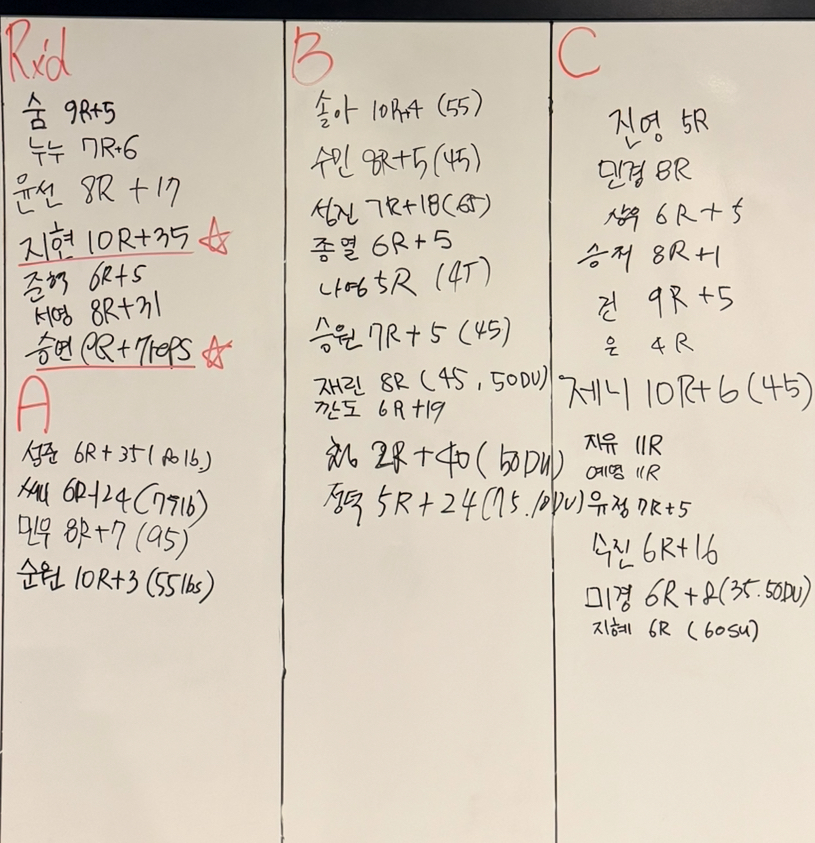 Rx'd
숨 9R+5
누누 7R+6
윤선 8R +17
지현 10R+35
준혁 6R+5
서영 8R+31
승연 +7reps
A
성준 6R+35
6R+24 (75lb)
민우 8R+7 (95)
순원 10R+3 (55lbs)
B
솔아 10R+4 (55)
수민 8R+5 (45)
성진 7R+18 (65)
종열 6R+5
나영 5R (45)
승원 7R+5 (45)
재린 8R (45, 50DU)
깐도 6R+19
R+40 (50DU)
정덕 5R+24 (75.
C
진영 5R
민경 8R
6R+5
승저 8R+1
건 9R+5
은 4R
제니 10R+6 (45)
지유 11R
예명 11R
유정 7R+5
수진 6R+16
미경 6R+2 (35.50DU)
지혜 6R (60SU)